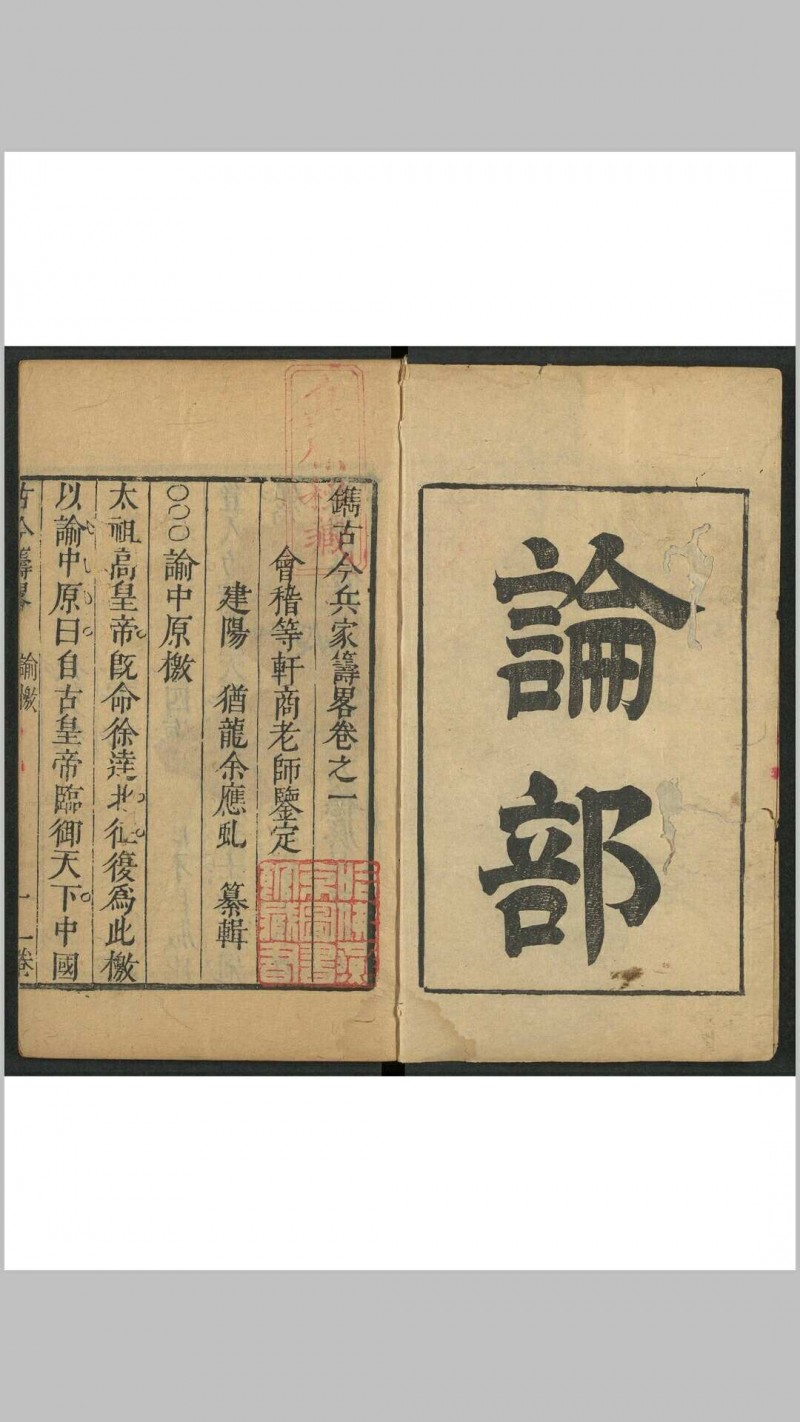 論部
鐫古今兵家籌畧卷之一
會稽等軒商老師鑒定
建陽 猶龍余應虬 纂輯
○○○諭中原檄
太祖高皇帝既命徐達北征復為此檄
以諭中原曰自古皇帝臨御天下中國
古今籌畧 諭檄 一 一卷